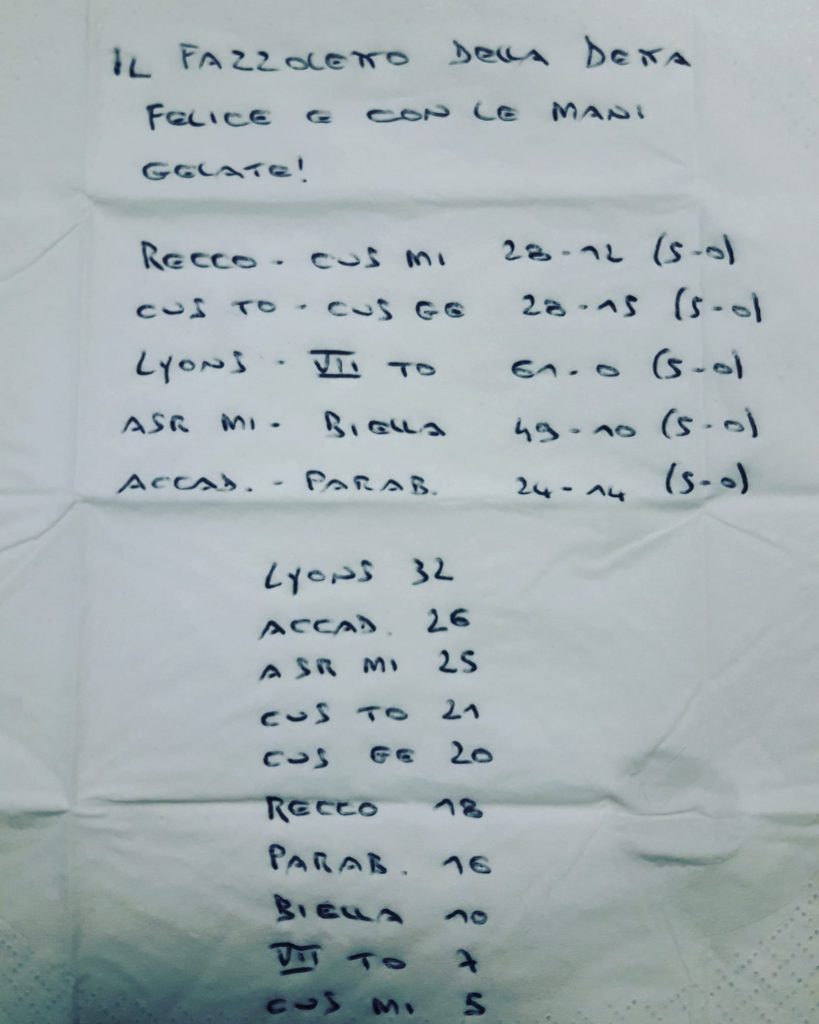 IL FAZZOLETTO DELLA DETTA
FELICE E CON LE MANI
GELATE!
RECCO - CUS MI 28-12 (5-0)
CUS TO - CUS GE 28-15 (5-0)
LYONS - VII TO 61-0 (5-0)
ASR MI - BIELLA 49-10 (5-0)
ACCAD. - PARAB. 24-14 (5-0)
LYONS 32
ACCAD. 26
ASR MI 25
CUS TO 21
CUS GE 20
RECCO 18
PARAB. 16
BIELLA 10
VII TO 7
CUS MI 5